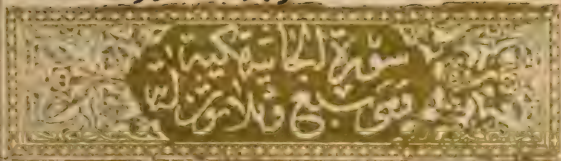 سورة الجاثية مكية
وهي سبع وثلاثون آية